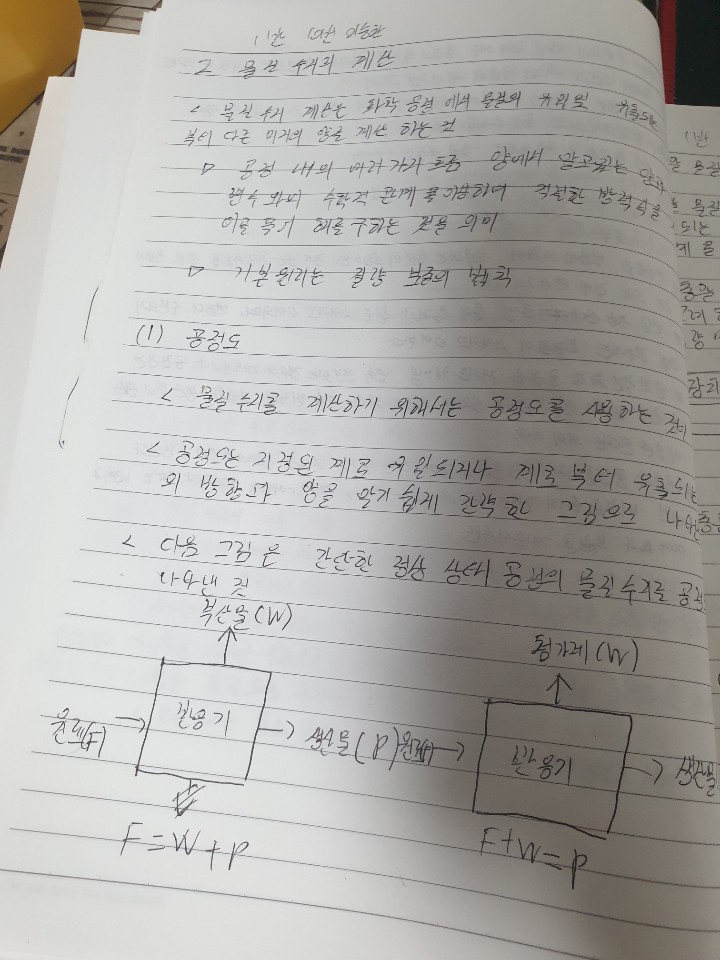 1반 10번
2 물질 수지의 계산
< 물질 수지 계산은 화학 공정에서 물질의 유입 및 유출되는
부터 다른 미지의 양을 계산 하는 것
▷ 공정 내의 여러가지 흐름 양에서 알고있는
변수와의 수학적 관계를 이용하여 적절한 방정식을
이를 통해 해를 구하는 것을 의미
▷ 기본원리는 질량 보존의 법칙
(1) 공정도
< 물질 수지를 계산하기 위해서는 공정도를 사용하는 것이
< 공정도는 지정된 계로 유입되거나 계로 부터 유출되는
의 방향과 양을 알기 쉽게 간략한 그림으로
< 다음 그림은 간단한 정상 상태 공정의 물질 수지를
나타낸 것
부산물(W)
첨가제(W)
원료(F)
반응기
생산물(P)
원료(F)
반응기
생산물
F=W+P
F+W=P
1반